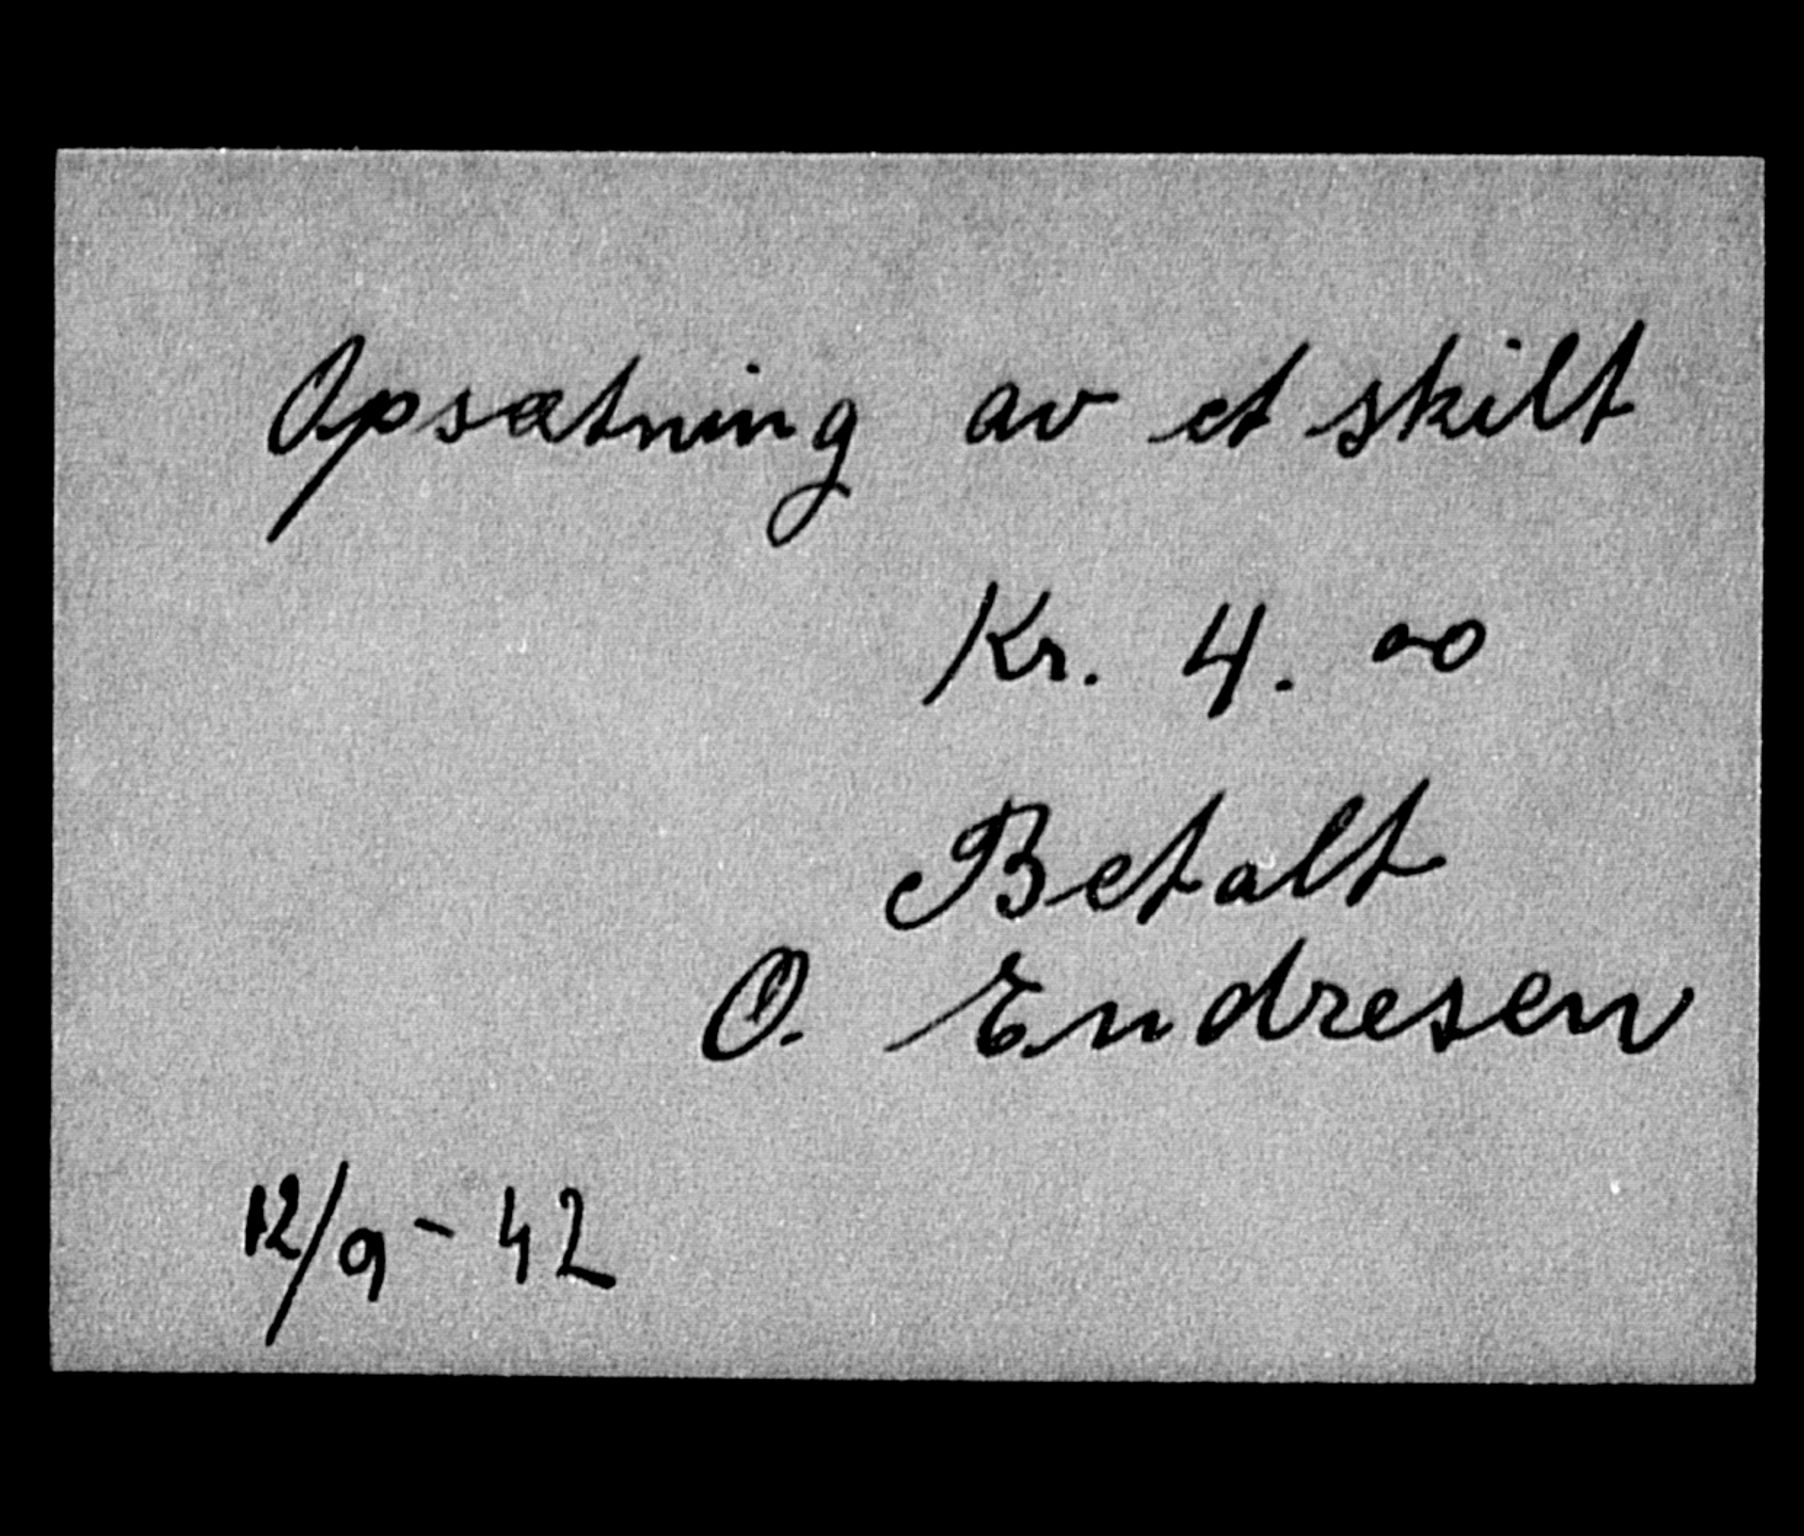 Opsætning av et skilt
Kr. 4.00
Betalt
O. Endresen
12/9-42